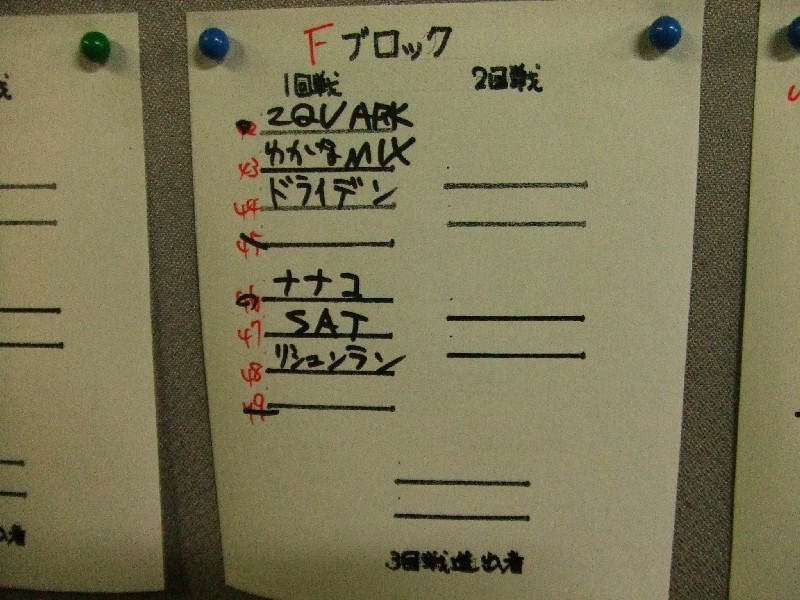 Fブロック
1回戦 2回戦
ZQN ARK
43 わかなMIX
44 ドライデン
45
ナナコ
47 SAT
48 リシュンラン
49
3回戦進出者